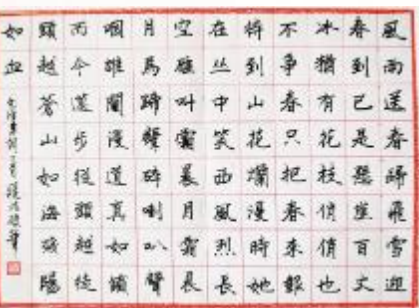 風雨送春歸飛雪迎
春到已是懸崖百丈
冰猶有花枝俏俏也
不爭春只把春來報
待到山花爛漫時她
在丛中笑西風烈長
空雁叫霜晨月霜晨
月馬蹄聲碎喇叭聲
咽雄關漫道真如鐵
而今邁步從頭越從
頭越蒼山如海殘陽
如血
毛澤東詞二首